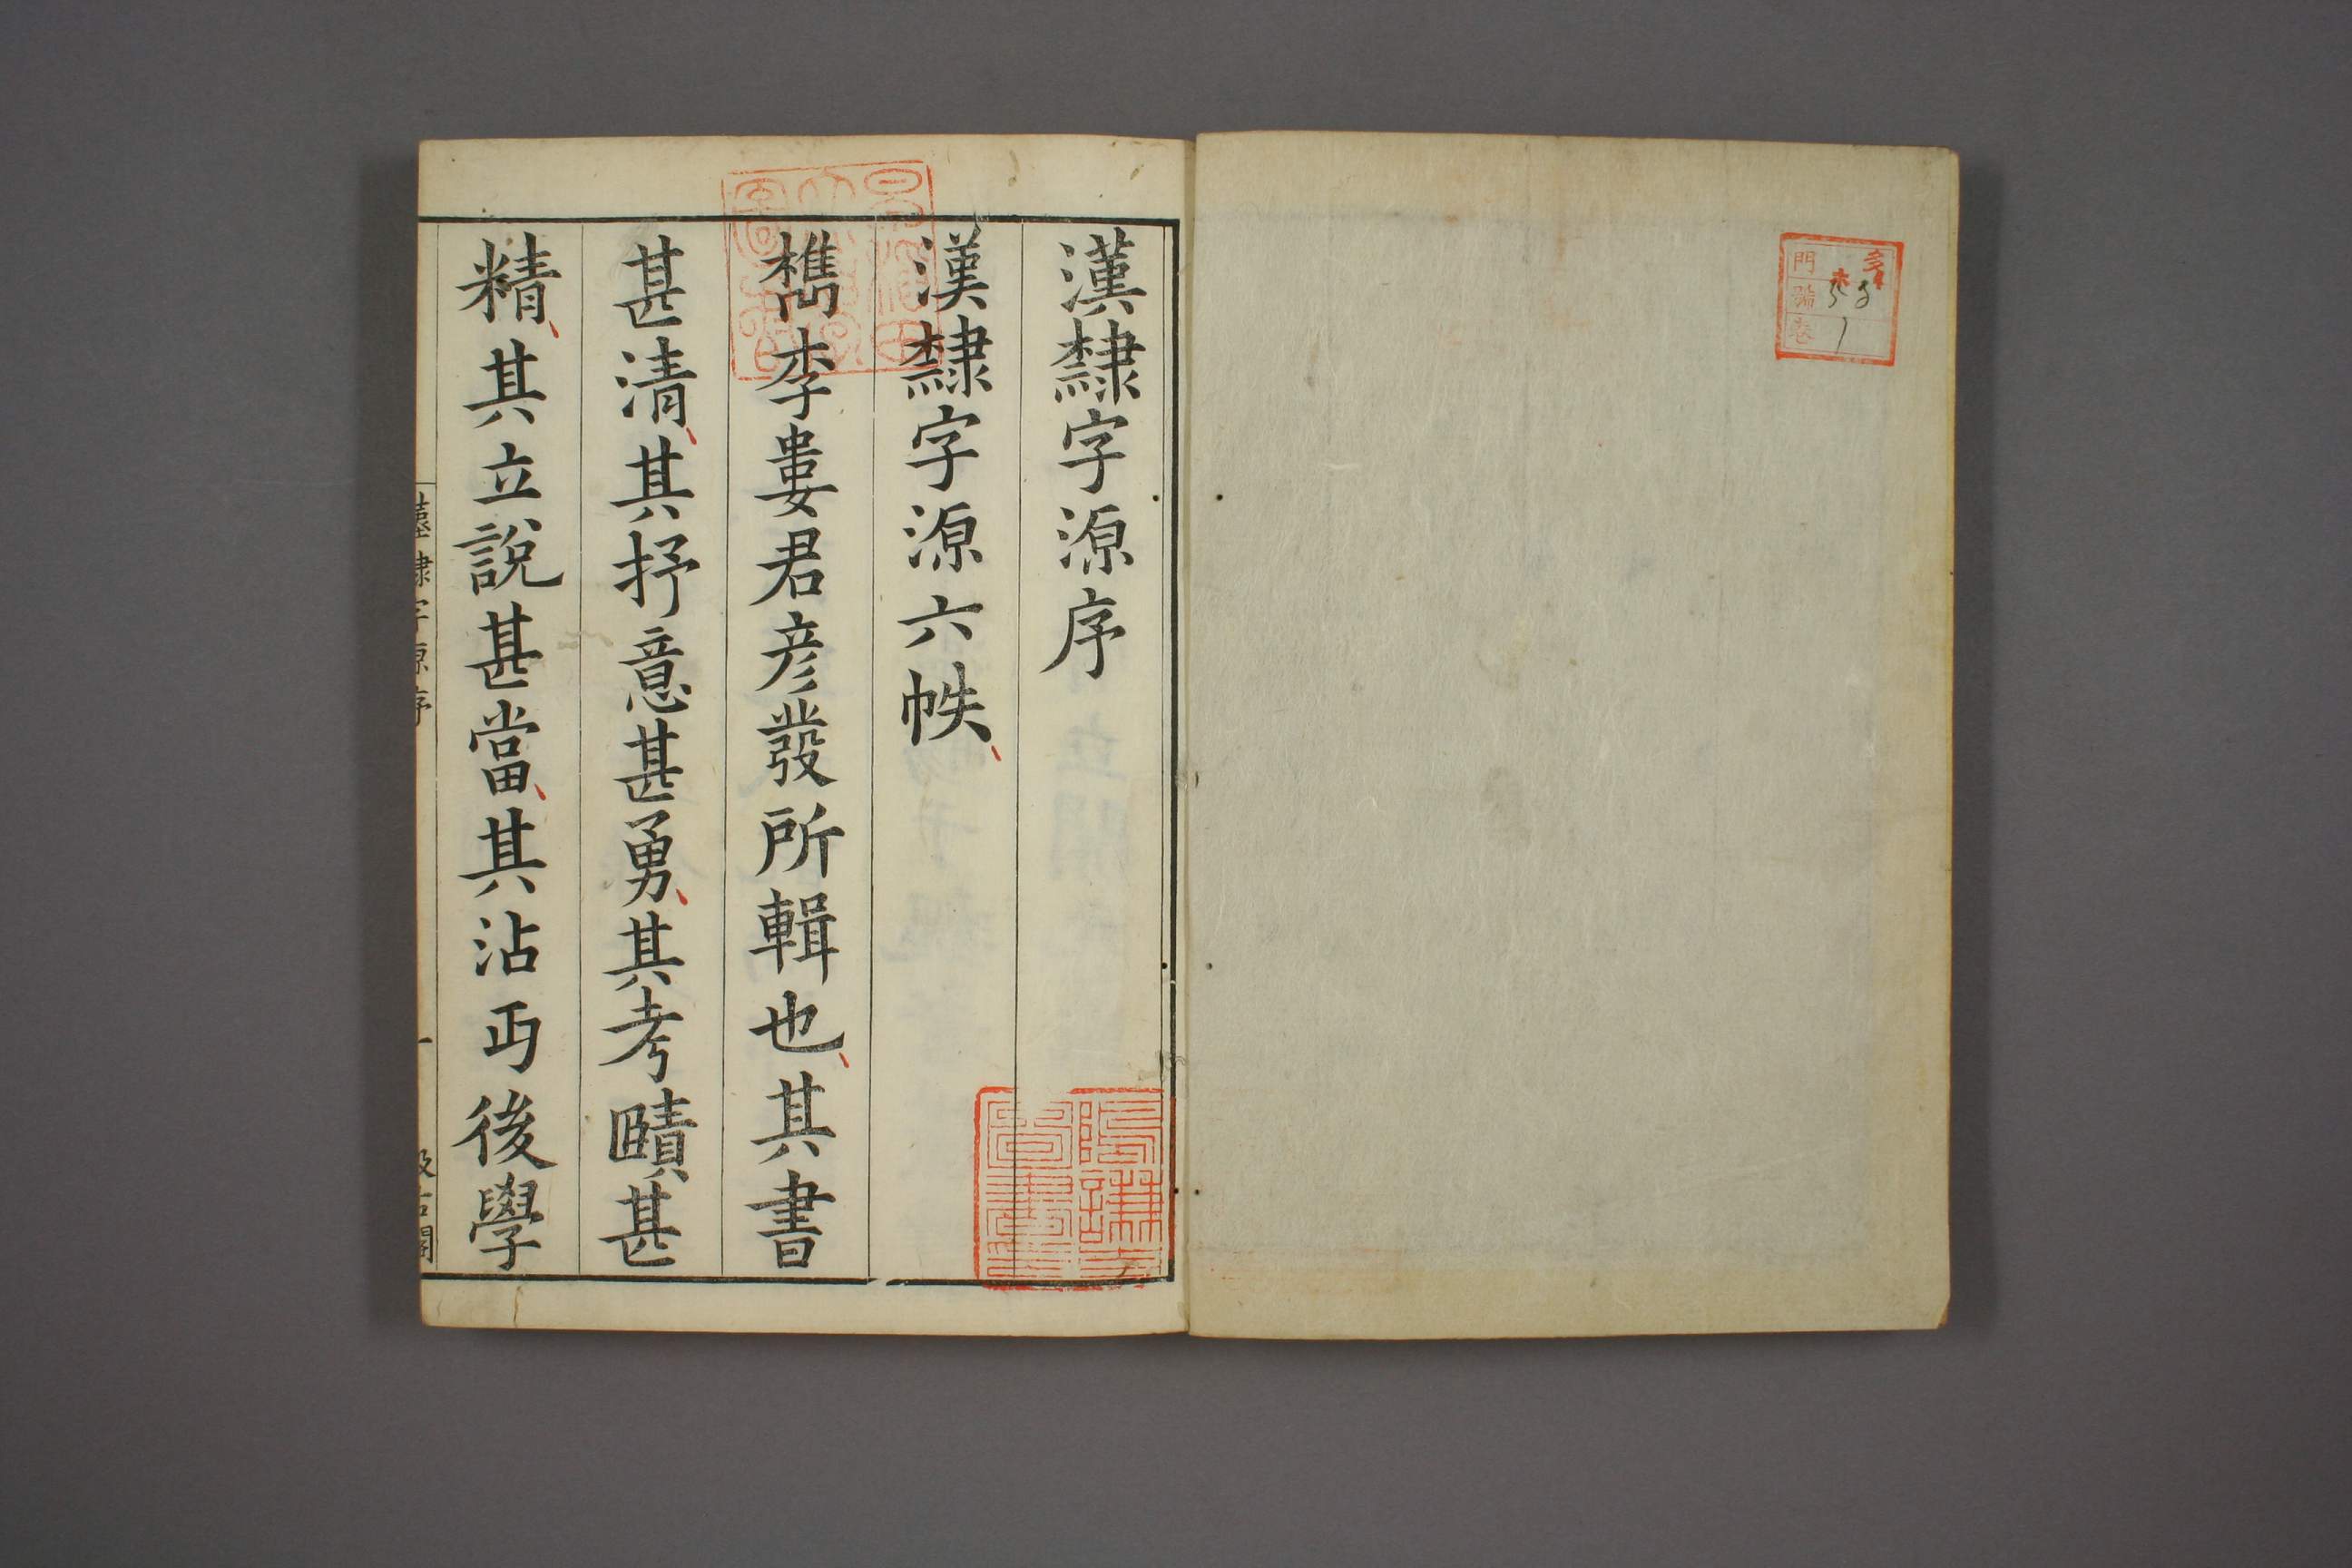 漢隸字源序
漢隸字源六帙
檇李婁君彦發所輯也其書
甚清其抒意甚勇其考賾甚
精其立說甚當其沾丏後學
漢隸字源序
一
汲古閣
門
號
卷